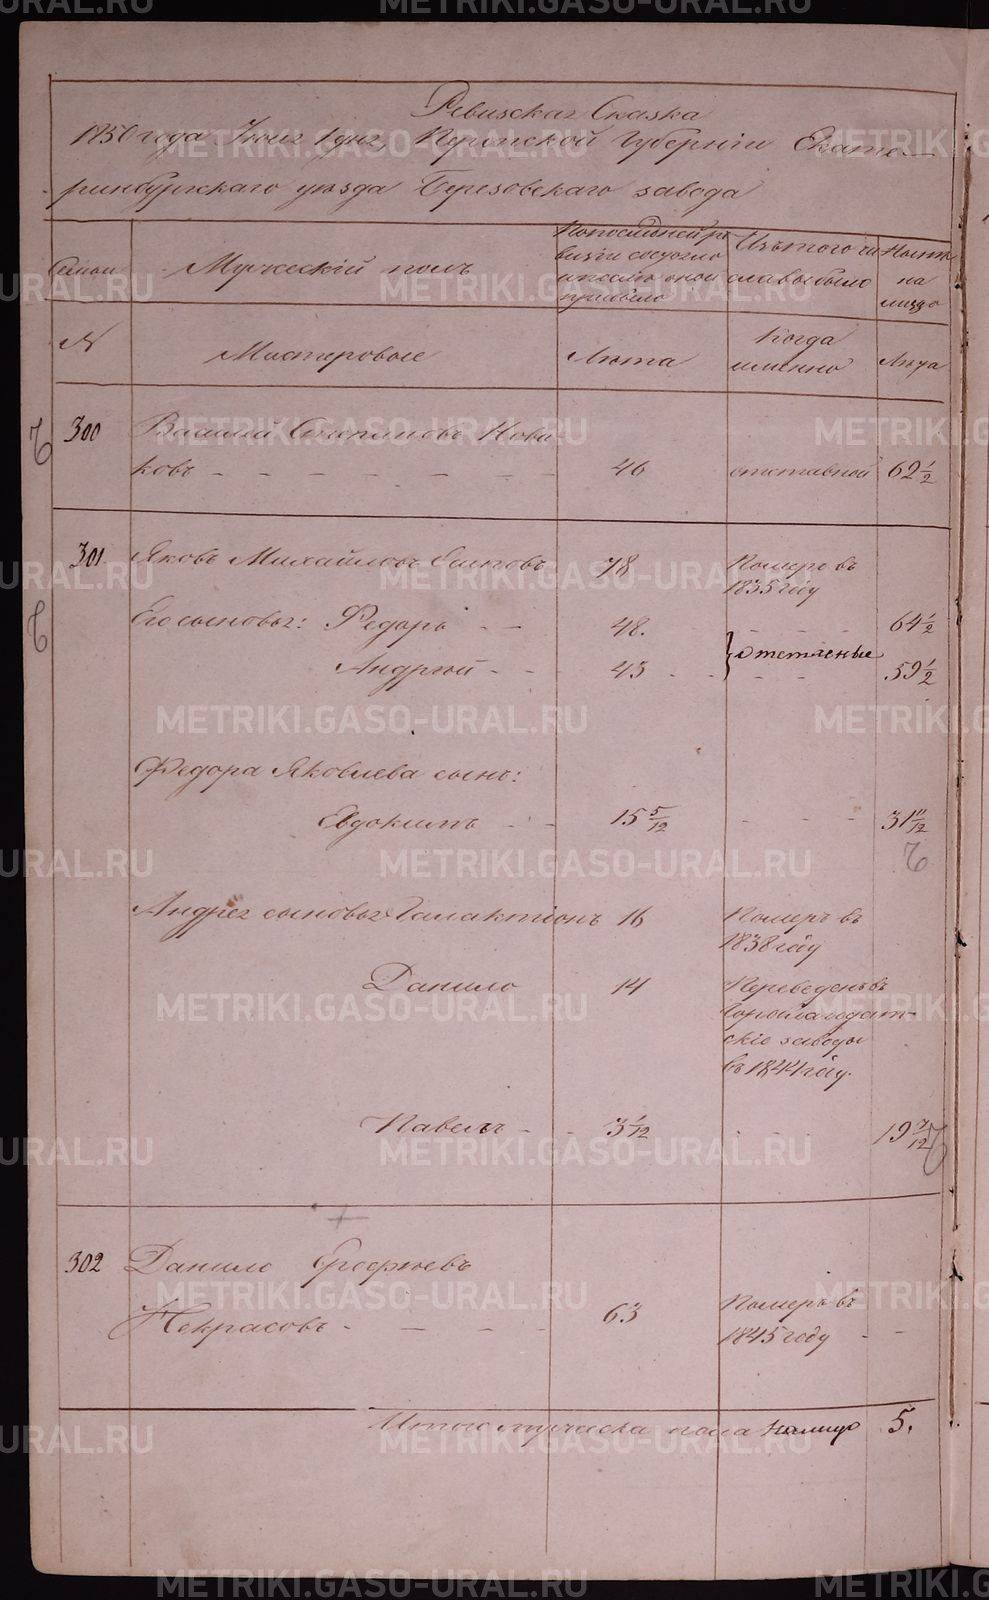 Ревизская Сказка
1850 года Июня 1 дня, Пермской Губерніи Екате-
ринбургскаго уѣзда Березовскаго завода
Семьи Мужескій полъ По послѣдней ре- Изъ того чи Нынѣ
визіи состояло сла выбыло на
и послѣ оной лицо
прибыло
№ Мастеровые Лѣта Когда Лѣта
именно
300 Василій Нови
ковъ - - - - - - - 46 отставной 62 1/2
301. Яковъ Михайловъ 78 Померъ въ
1835 году
Его сыновья: Федоръ - - 48. - - - - 64 1/2
отставные
Андрей - - 43 - - - - 59 1/2
Федора Яковлева сынъ:
Евдокимъ - - 15 5/12 - - - 31 11/12
Андрея сыновья Галактіонъ 16 Померъ въ
1838 году
Данило 14 Переведенъ въ
Гороблагодат-
скіе заводы
въ 1844 году.
Павелъ - - 3 1/12 - - - 19 7/12
302 Данило Ерофѣевъ
Некрасовъ - - - - - 63 Померъ въ
1845 году - -
Итого мужеска пола на лицо 5.
METRIKI.GASO-URAL.RU